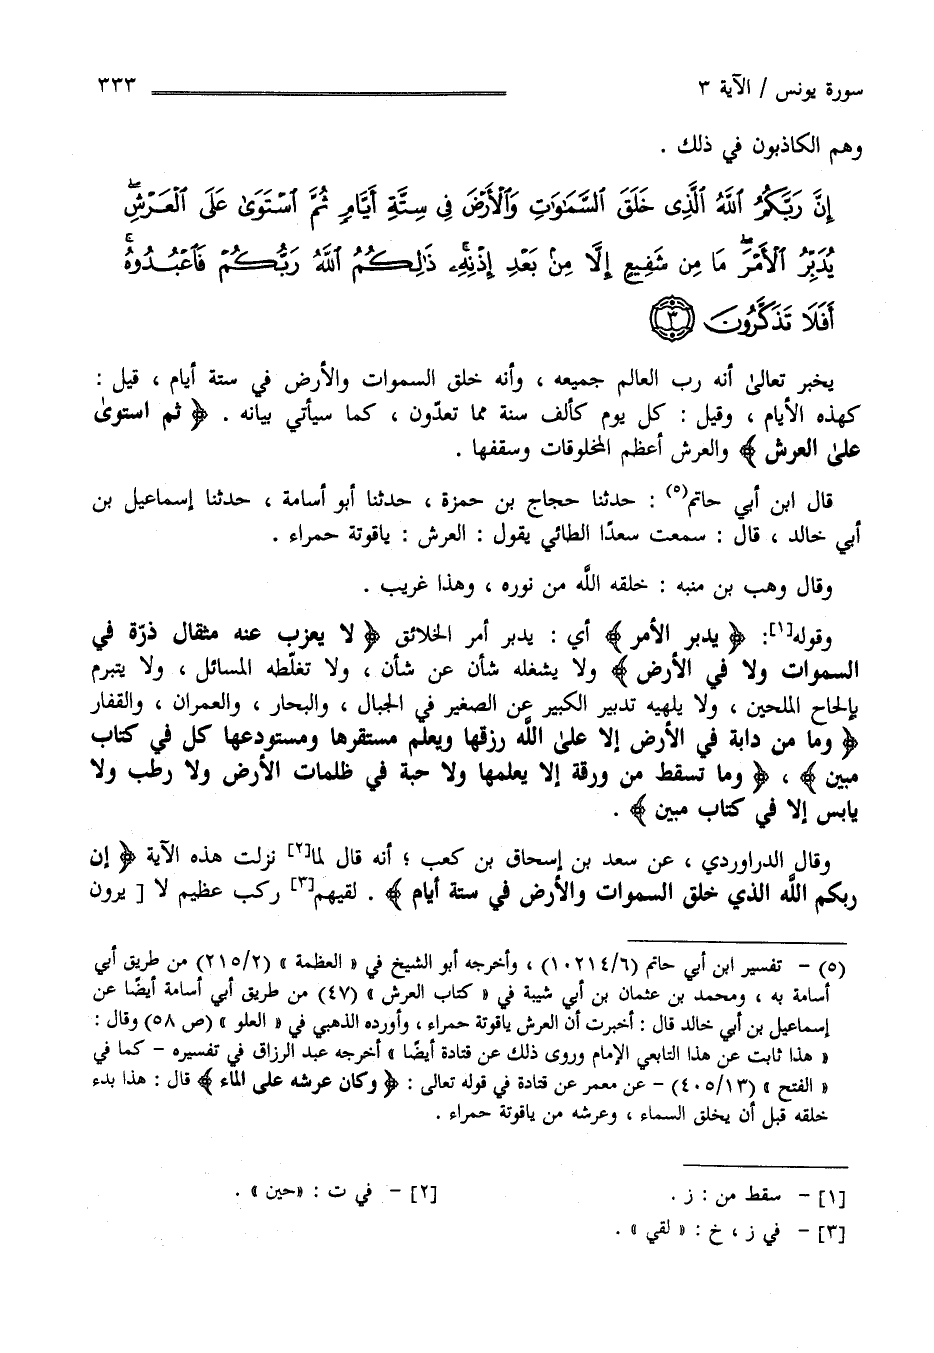 سورة يونس / الآية ٣ ٣٣٣
وهم الكاذبون في ذلك .
إِنَّ رَبَّكُمُ ٱللَّهُ ٱلَّذِى خَلَقَ ٱلسَّمَٰوَٰتِ وَٱلْأَرْضَ فِى سِتَّةِ أَيَّامٍ ثُمَّ ٱسْتَوَىٰ عَلَى ٱلْعَرْشِ ۖ
يُدَبِّرُ ٱلْأَمْرَ ۖ مَا مِن شَفِيعٍ إِلَّا مِنۢ بَعْدِ إِذْنِهِۦ ۚ ذَٰلِكُمُ ٱللَّهُ رَبُّكُمْ فَٱعْبُدُوهُ ۚ
أَفَلَا تَذَكَّرُونَ ٣
يخبر تعالىٰ أنه رب العالم جميعه ، وأنه خلق السموات والأرض في ستة أيام ، قيل :
كهذه الأيام ، وقيل : كل يوم كألف سنة مما تعدّون ، كما سيأتي بيانه . ﴿ ثم استوىٰ
علىٰ العرش ﴾ والعرش أعظم المخلوقات وسقفها .
قال ابن أبي حاتم(٥) : حدثنا حجاج بن حمزة ، حدثنا أبو أسامة ، حدثنا إسماعيل بن
أبي خالد ، قال : سمعت سعدًا الطائي يقول : العرش : ياقوتة حمراء .
وقال وهب بن منبه : خلقه اللَّه من نوره ، وهذا غريب .
وقوله[١]: ﴿ يدبر الأمر ﴾ أي : يدبر أمر الخلائق ﴿ لا يعزب عنه مثقال ذرّة في
السموات ولا في الأرض ﴾ ولا يشغله شأن عن شأن ، ولا تغلّطه المسائل ، ولا يتبرم
بإلحاح الملحين ، ولا يلهيه تدبير الكبير عن الصغير في الجبال ، والبحار ، والعمران ، والقفار
﴿ وما من دابة في الأرض إلا علىٰ اللَّه رزقها ويعلم مستقرها ومستودعها كل في كتاب
مبين ﴾ ، ﴿ وما تسقط من ورقة إلا يعلمها ولا حبة في ظلمات الأرض ولا رطب ولا
يابس إلا في كتاب مبين ﴾ .
وقال الدراوردي ، عن سعد بن إسحاق بن كعب ؛ أنه قال لما[٢] نزلت هذه الآية ﴿ إن
ربكم اللَّه الذي خلق السموات والأرض في ستة أيام ﴾ . لقيهم[٣] ركب عظيم لا [ يرون
(٥) - تفسير ابن أبي حاتم (١٠٢١٤/٦) ، وأخرجه أبو الشيخ في « العظمة » (٢١٥/٢) من طريق أبي
أسامة به ، ومحمد بن عثمان بن أبي شيبة في « كتاب العرش » (٤٧) من طريق أبي أسامة أيضًا عن
إسماعيل بن أبي خالد قال : أخبرت أن العرش ياقوتة حمراء ، وأورده الذهبي في « العلو » (ص ٥٨) وقال :
« هذا ثابت عن هذا التابعي الإمام وروى ذلك عن قتادة أيضًا » أخرجه عبد الرزاق في تفسيره - كما في
« الفتح » (٤٠٥/١٣) - عن معمر عن قتادة في قوله تعالى : ﴿ وكان عرشه على الماء ﴾ قال : هذا بدء
خلقه قبل أن يخلق السماء ، وعرشه من ياقوتة حمراء .
[١] - سقط من : ز . [٢] - في ت : «حين» .
[٣] - في ز ، خ : « لقي » .